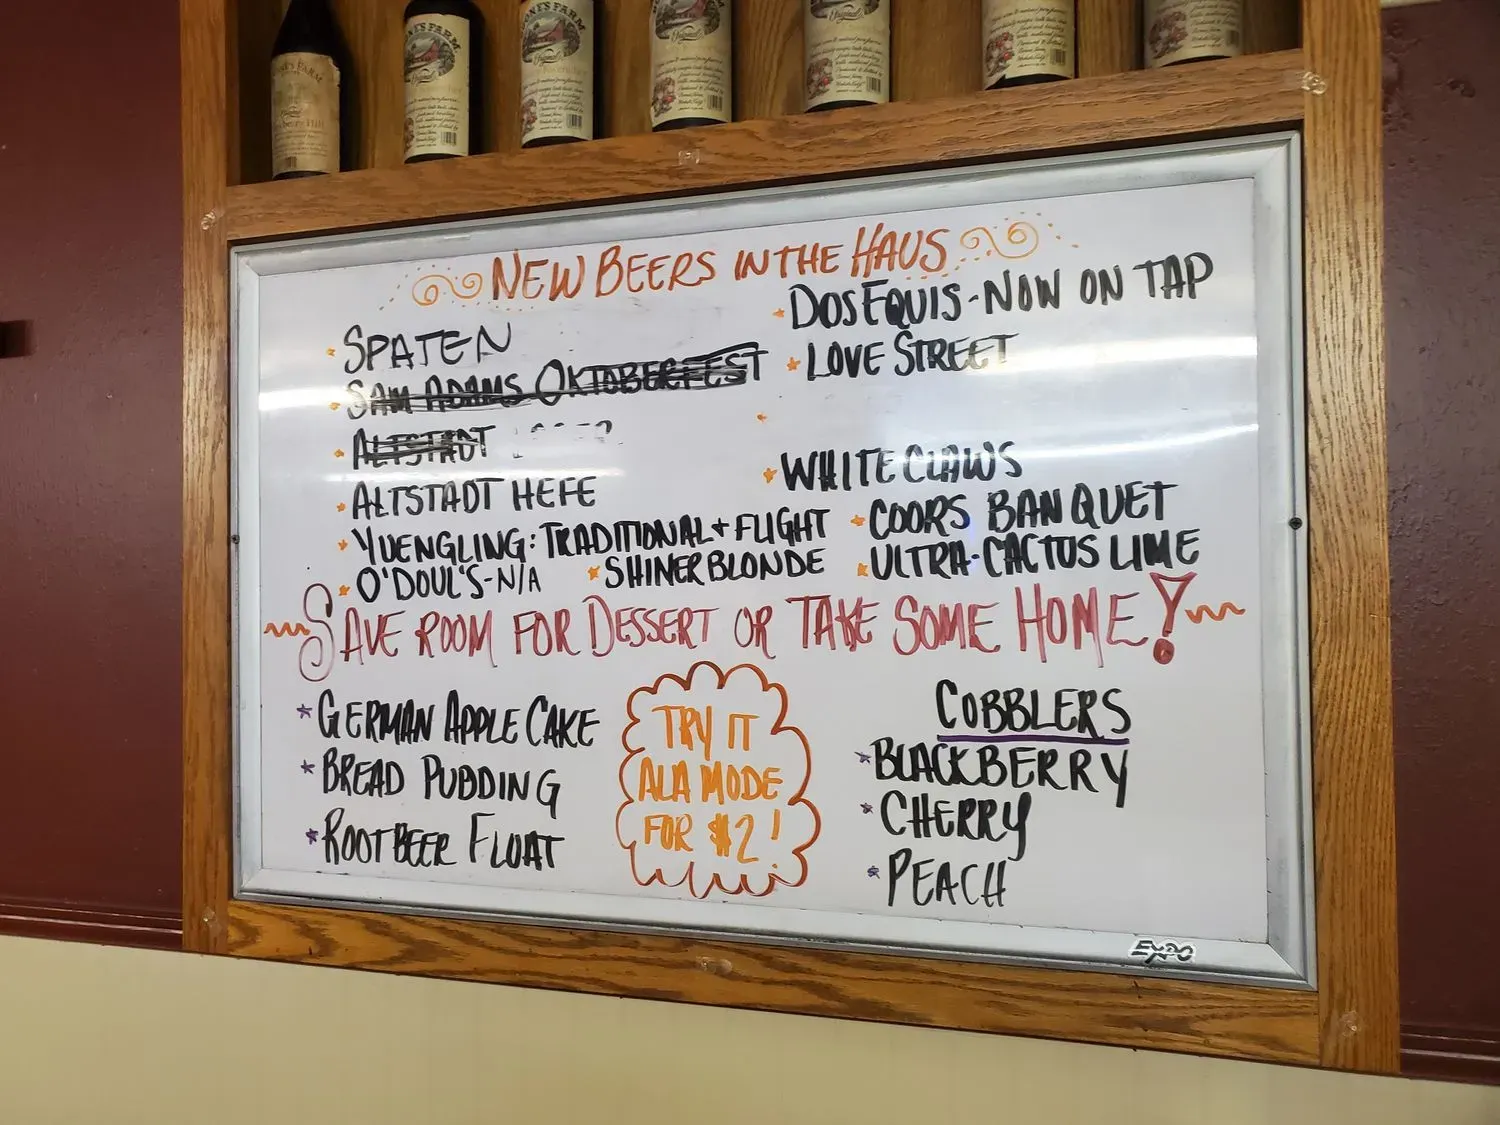 NEW BEERS IN THE HAUS
SPATEN
SAM ADAMS OKTOBERFEST
ALTSTADT
ALTSTADT HEFE
YUENGLING: TRADITIONAL + FLIGHT
O'DOUL'S-N/A
SHINER BLONDE
DOS EQUIS-NOW ON TAP
LOVE STREET
WHITE CLAWS
COORS BANQUET
ULTRA-CACTUS LIME
SAVE ROOM FOR DESSERT OR TAKE SOME HOME!
GERMAN APPLE CAKE
BREAD PUDDING
ROOTBEER FLOAT
TRY IT
ALA MODE
FOR $2!
COBBLERS
BLACKBERRY
CHERRY
PEACH
EXPO